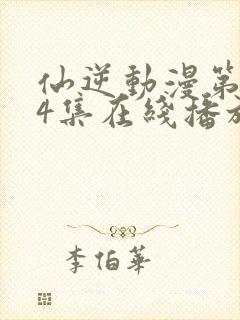 仙逆動漫第
4集在綫播放
李伯華